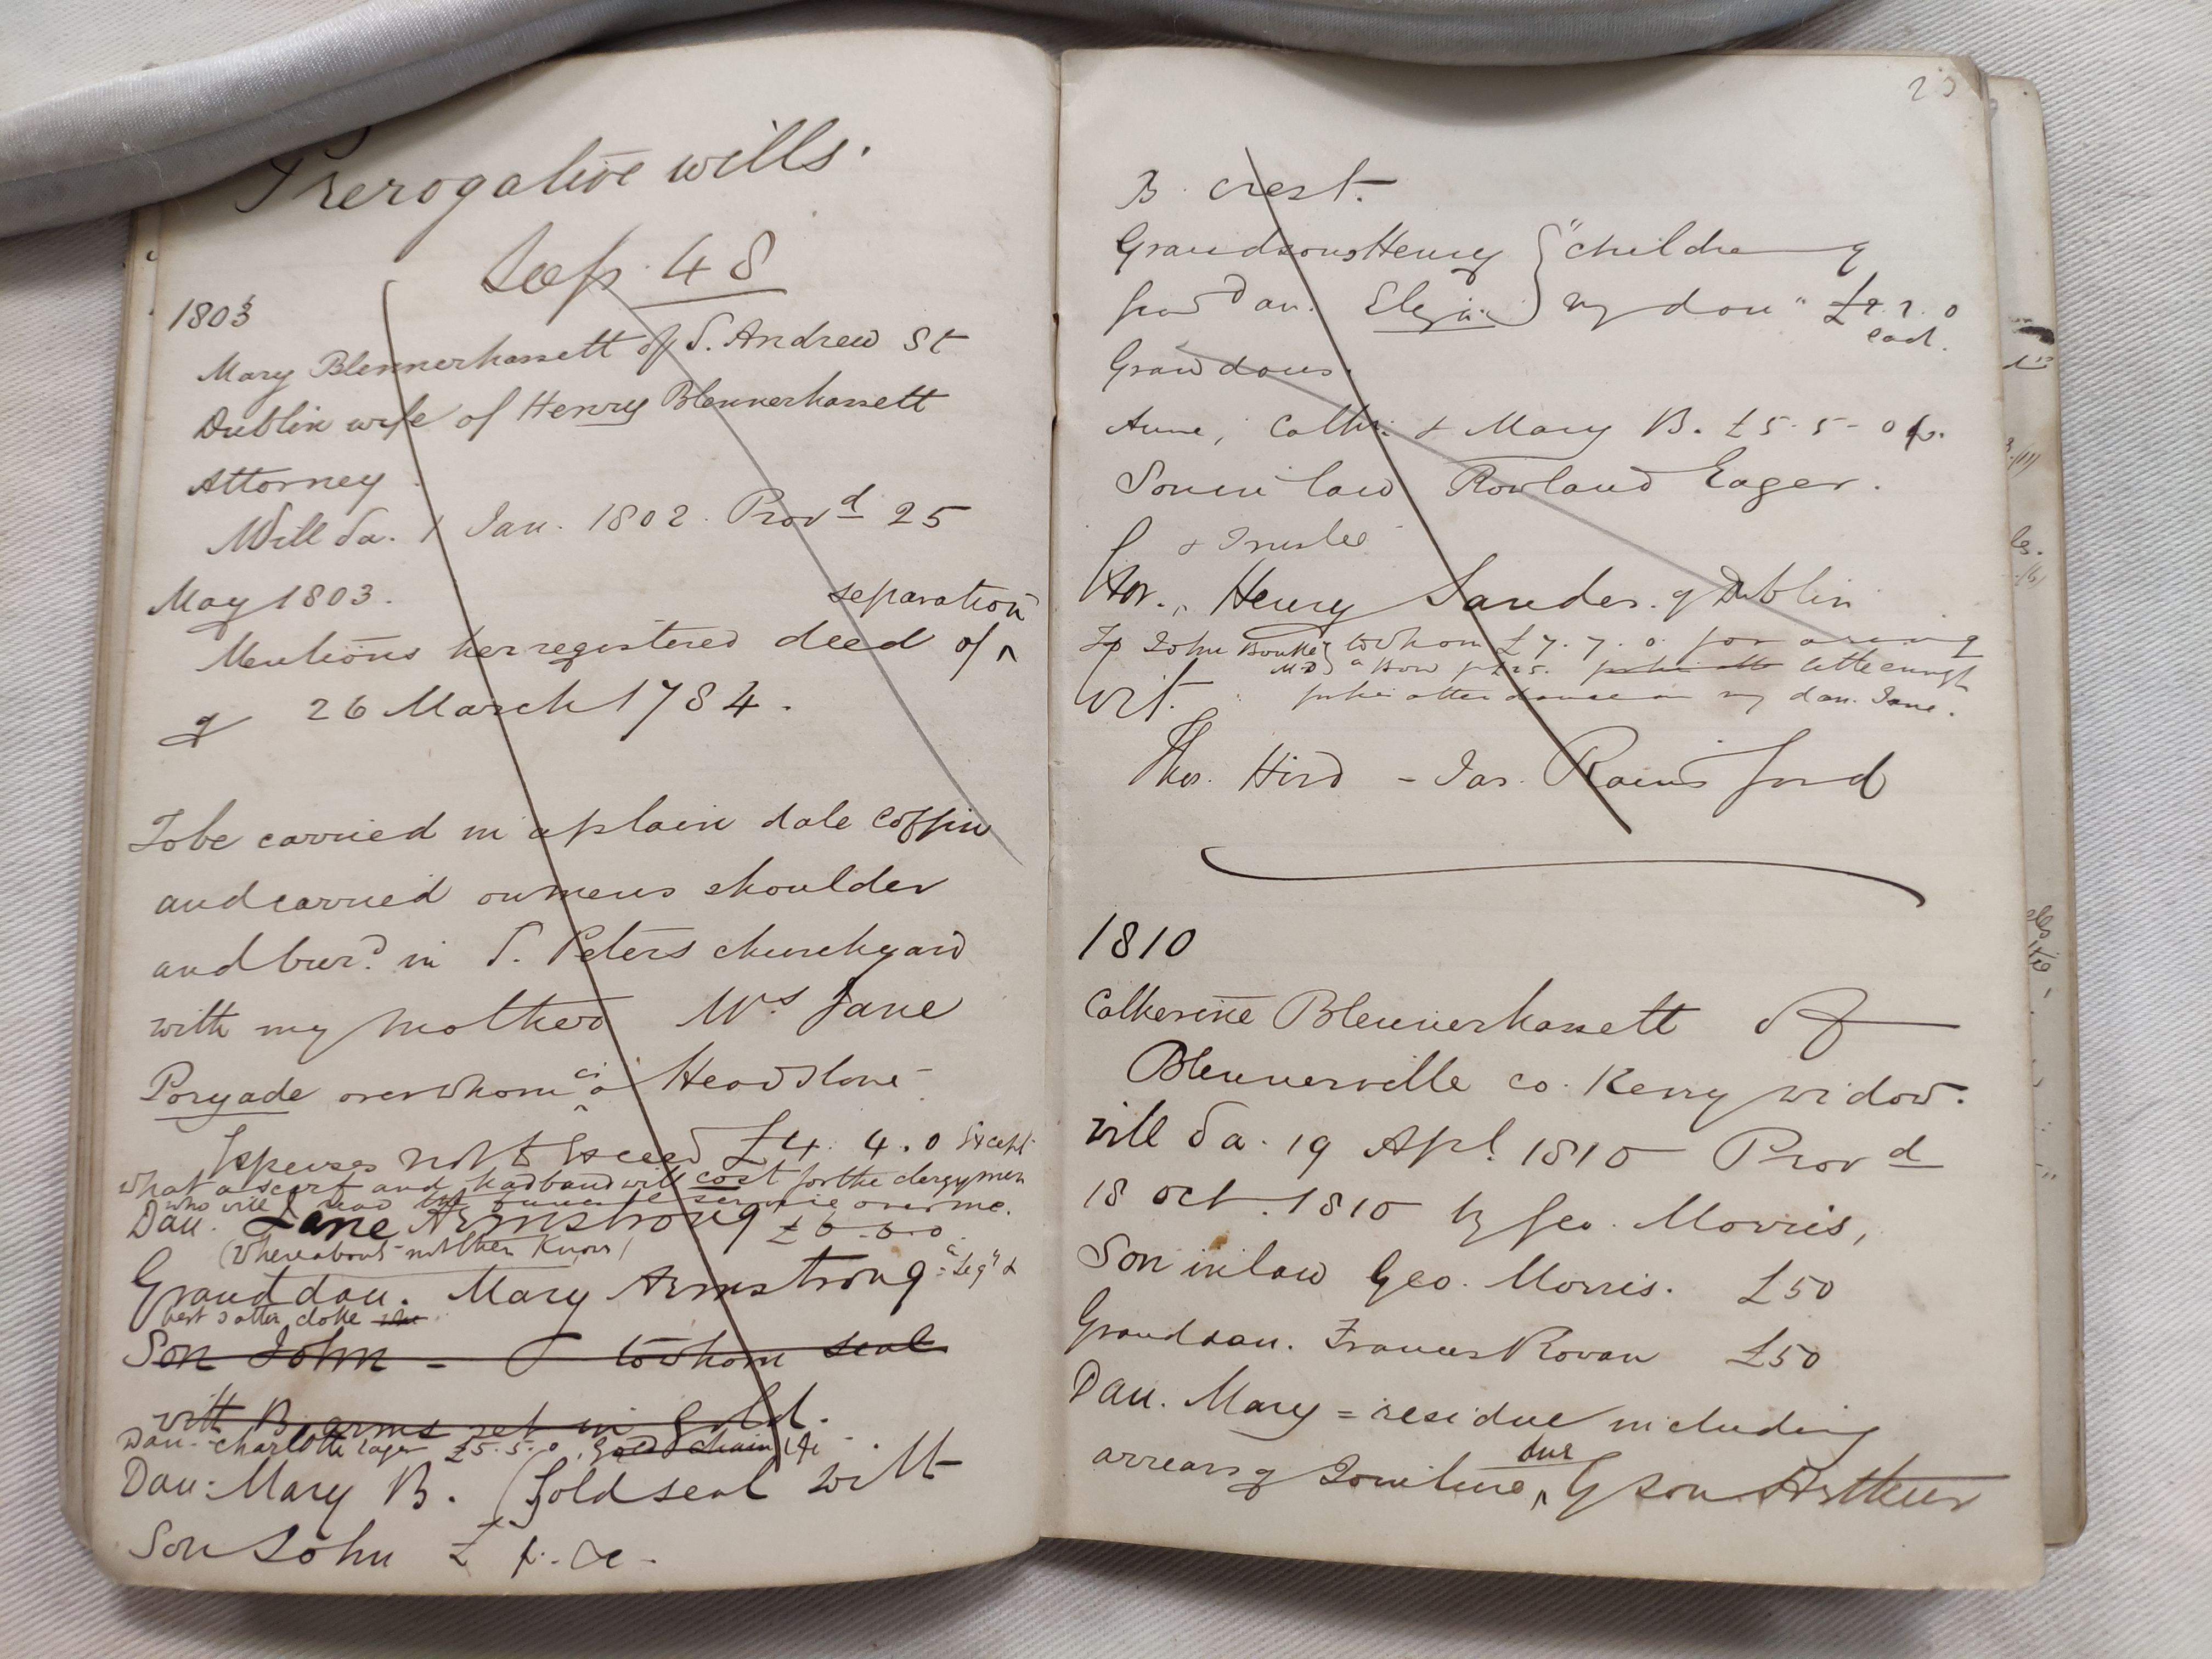 Prerogative wills.
Sep. 48
1803
Mary Blennerhassett of S. Andrew St
Dublin wife of Henry Blennerhassett
Attorney.
Will da. 1 Jan. 1802. Provd 25
May 1803.
separation
Mentions her registered deed of ^
of 26 March 1784.
To be carried in a plain dale coffin
and carried on mens shoulder
and burd. in S. Peters churchyard
with my mother Mrs Jane
Poryade over whom is a Headstone
Expenses not to exceed £4. 4. 0 Except
what a scarf and hadband will cost for the clergymen
who will read funeral service over me.
Dau. Jane Armstrong £6-6-0
(Whereabouts not then Known)
Granddau. Mary Armstrong "Leg" &
best satten cloke
Son John - to whom seal
with B. arms set in gold.
Dau. Charlotte Eager £5.5.0, Gold chain
Dau: Mary B. (Gold seal with
Son John £
23
B. crest.
Grandsons Henry } "children of
Gran Dau. Eliza } my dau"
each.
Grandaus.
Anne, Cathe. & Mary B. £5-5-0
Son in law Rowland Eager.
& Trustee
Henry Sandes. of Dublin
John to whom £7. 7. 0 for
MD little enough
for his attendance on my dau. Jane.
Wit.
Thos. Hird - Jas. Rainsford
1810
Catherine Blennerhassett of
Blennerville co. Kerry widow.
Will da. 19 Apl. 1810 Provd
18 Oct. 1810 by Geo. Morris,
Son in law Geo. Morris. £50
Granddau. Frances Rowan £50
Dau. Mary = residue including
due
arrears of Jointure ^ by son Arthur